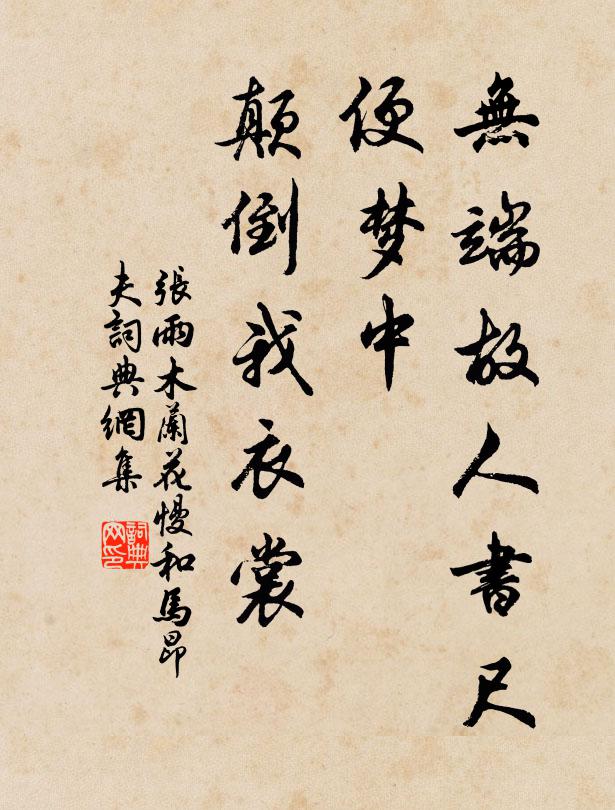 無端故人書尺
便梦中
颠倒我衣裳
張雨木蘭花慢和馬昂
夫詞典網集
詞典
网印